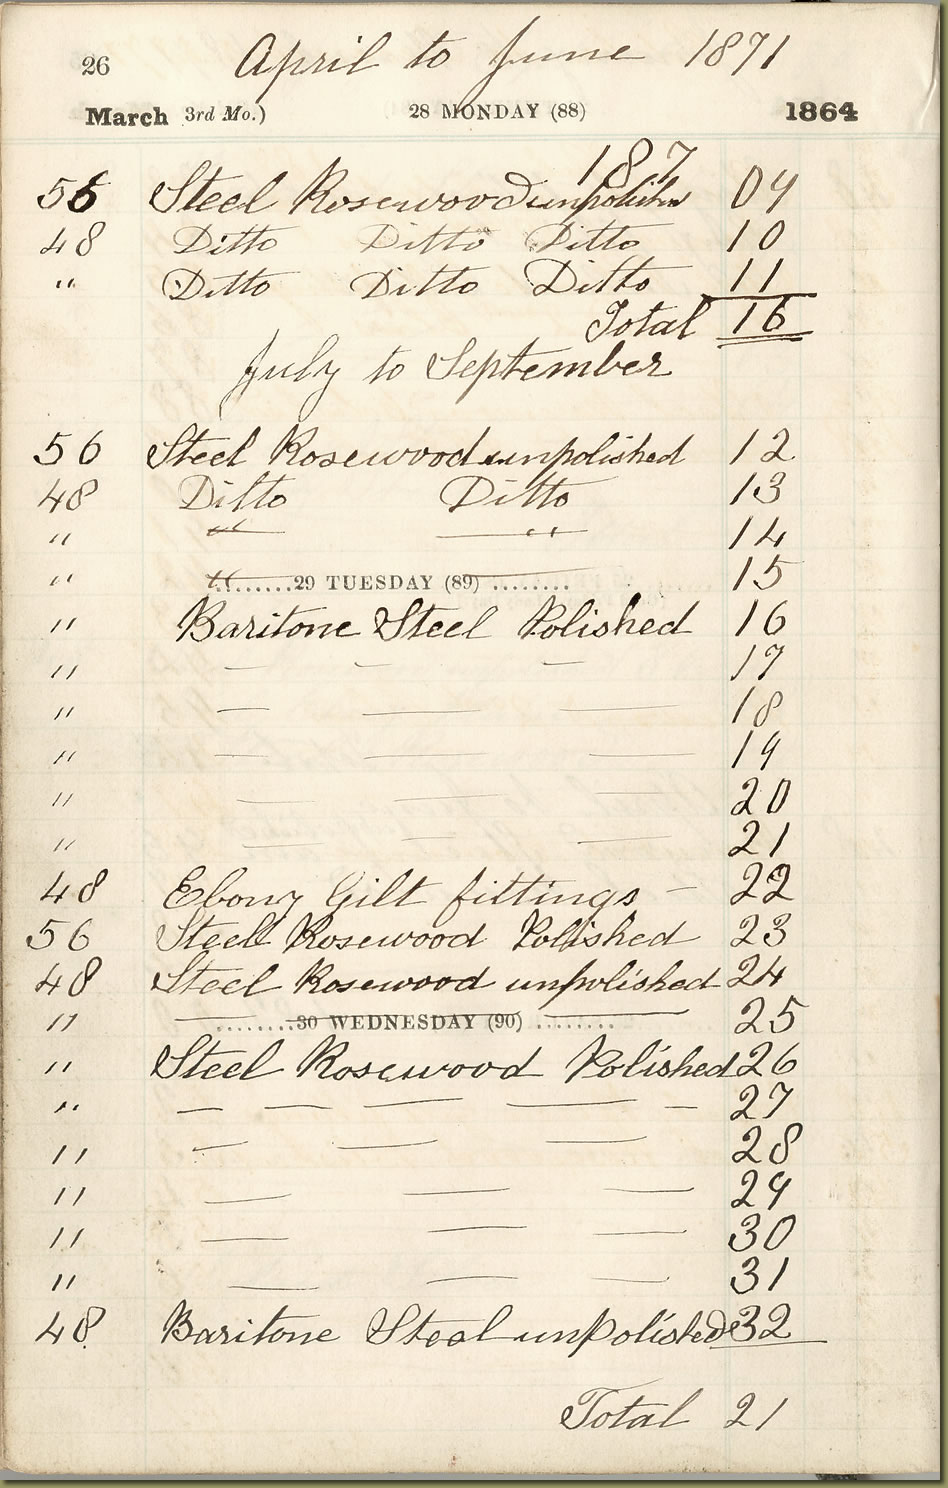 26 April to June 1871
March 3rd Mo.) 28 MONDAY (88) 1864
187
56 Steel Rosewood unpolishd 09
48 Ditto Ditto Ditto 10
" Ditto Ditto Ditto 11
Total 16
July to September
56 Steel Rosewood unpolished 12
48 Ditto Ditto 13
" " " 14
" " 15
29 TUESDAY (89)
" Baritone Steel Polished 16
" — — — 17
" — — — 18
" — — — 19
" — — — 20
" — — — 21
48 Ebony Gilt fittings – 22
56 Steel Rosewood Polished 23
48 Steel Rosewood unpolished 24
" — — — 25
30 WEDNESDAY (90)
" Steel Rosewood Polished 26
" — — — — — 27
" — — — 28
" — — — 29
" — — — 30
" — — — 31
48 Baritone Steel unpolished 32
Total 21